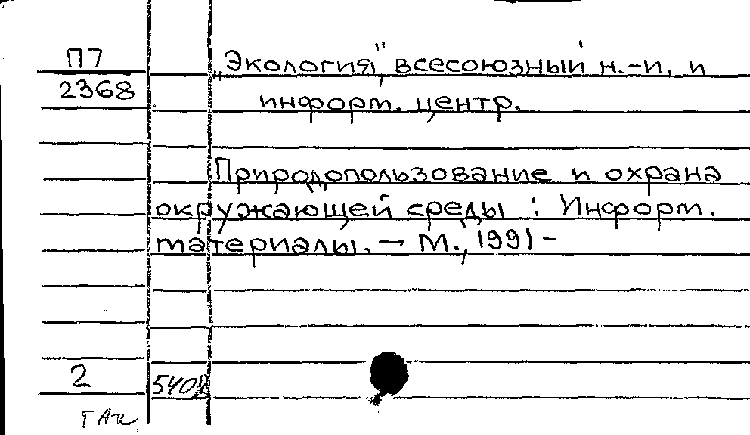 П7
2368
„Экология", всесоюзный н.-и. и
информ. центр.
Природопользование и охрана
окружающей среды : Информ.
материалы. — М., 1991 -
2